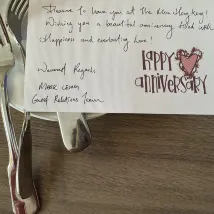 to have you at The
Wishing you a beautiful anniversary filled with
Happiness and everlasting love!
Warmest Regards
Guest Relations Team
HAPPY
anniversary